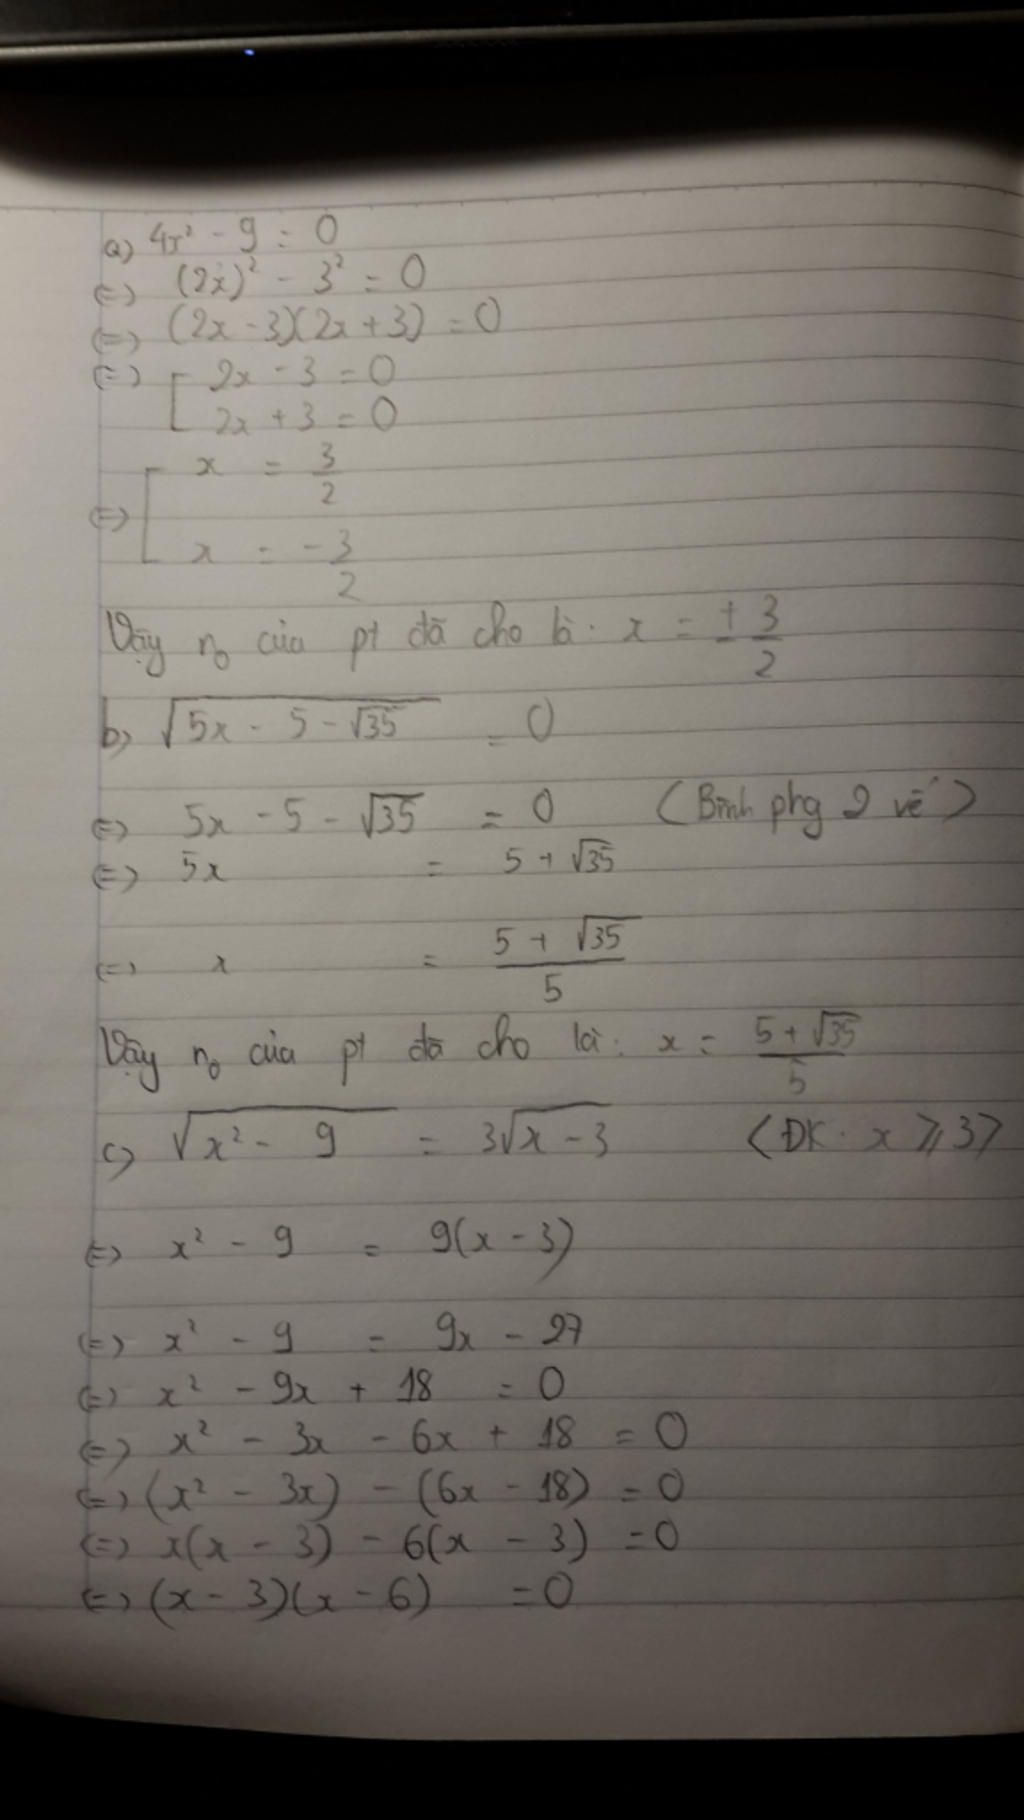 a) 4x² - 9 = 0
(=) (2x)² - 3² = 0
(=) (2x - 3)(2x + 3) = 0
(=) [ 2x - 3 = 0
2x + 3 = 0
(=) [ x = 3/2
x = -3/2
Vậy n₀ của pt đã cho là: x = ± 3/2
b) √(5x - 5 - √35) = 0
(=) 5x - 5 - √35 = 0 (Bình phg 2 vế)
(=) 5x = 5 + √35
(=) x = (5 + √35)/5
Vậy n₀ của pt đã cho là: x = (5 + √35)/5
c) √(x² - 9) = 3√(x - 3) (ĐK: x ⩾ 3)
(=) x² - 9 = 9(x - 3)
(=) x² - 9 = 9x - 27
(=) x² - 9x + 18 = 0
(=) x² - 3x - 6x + 18 = 0
(=) (x² - 3x) - (6x - 18) = 0
(=) x(x - 3) - 6(x - 3) = 0
(=) (x - 3)(x - 6) = 0